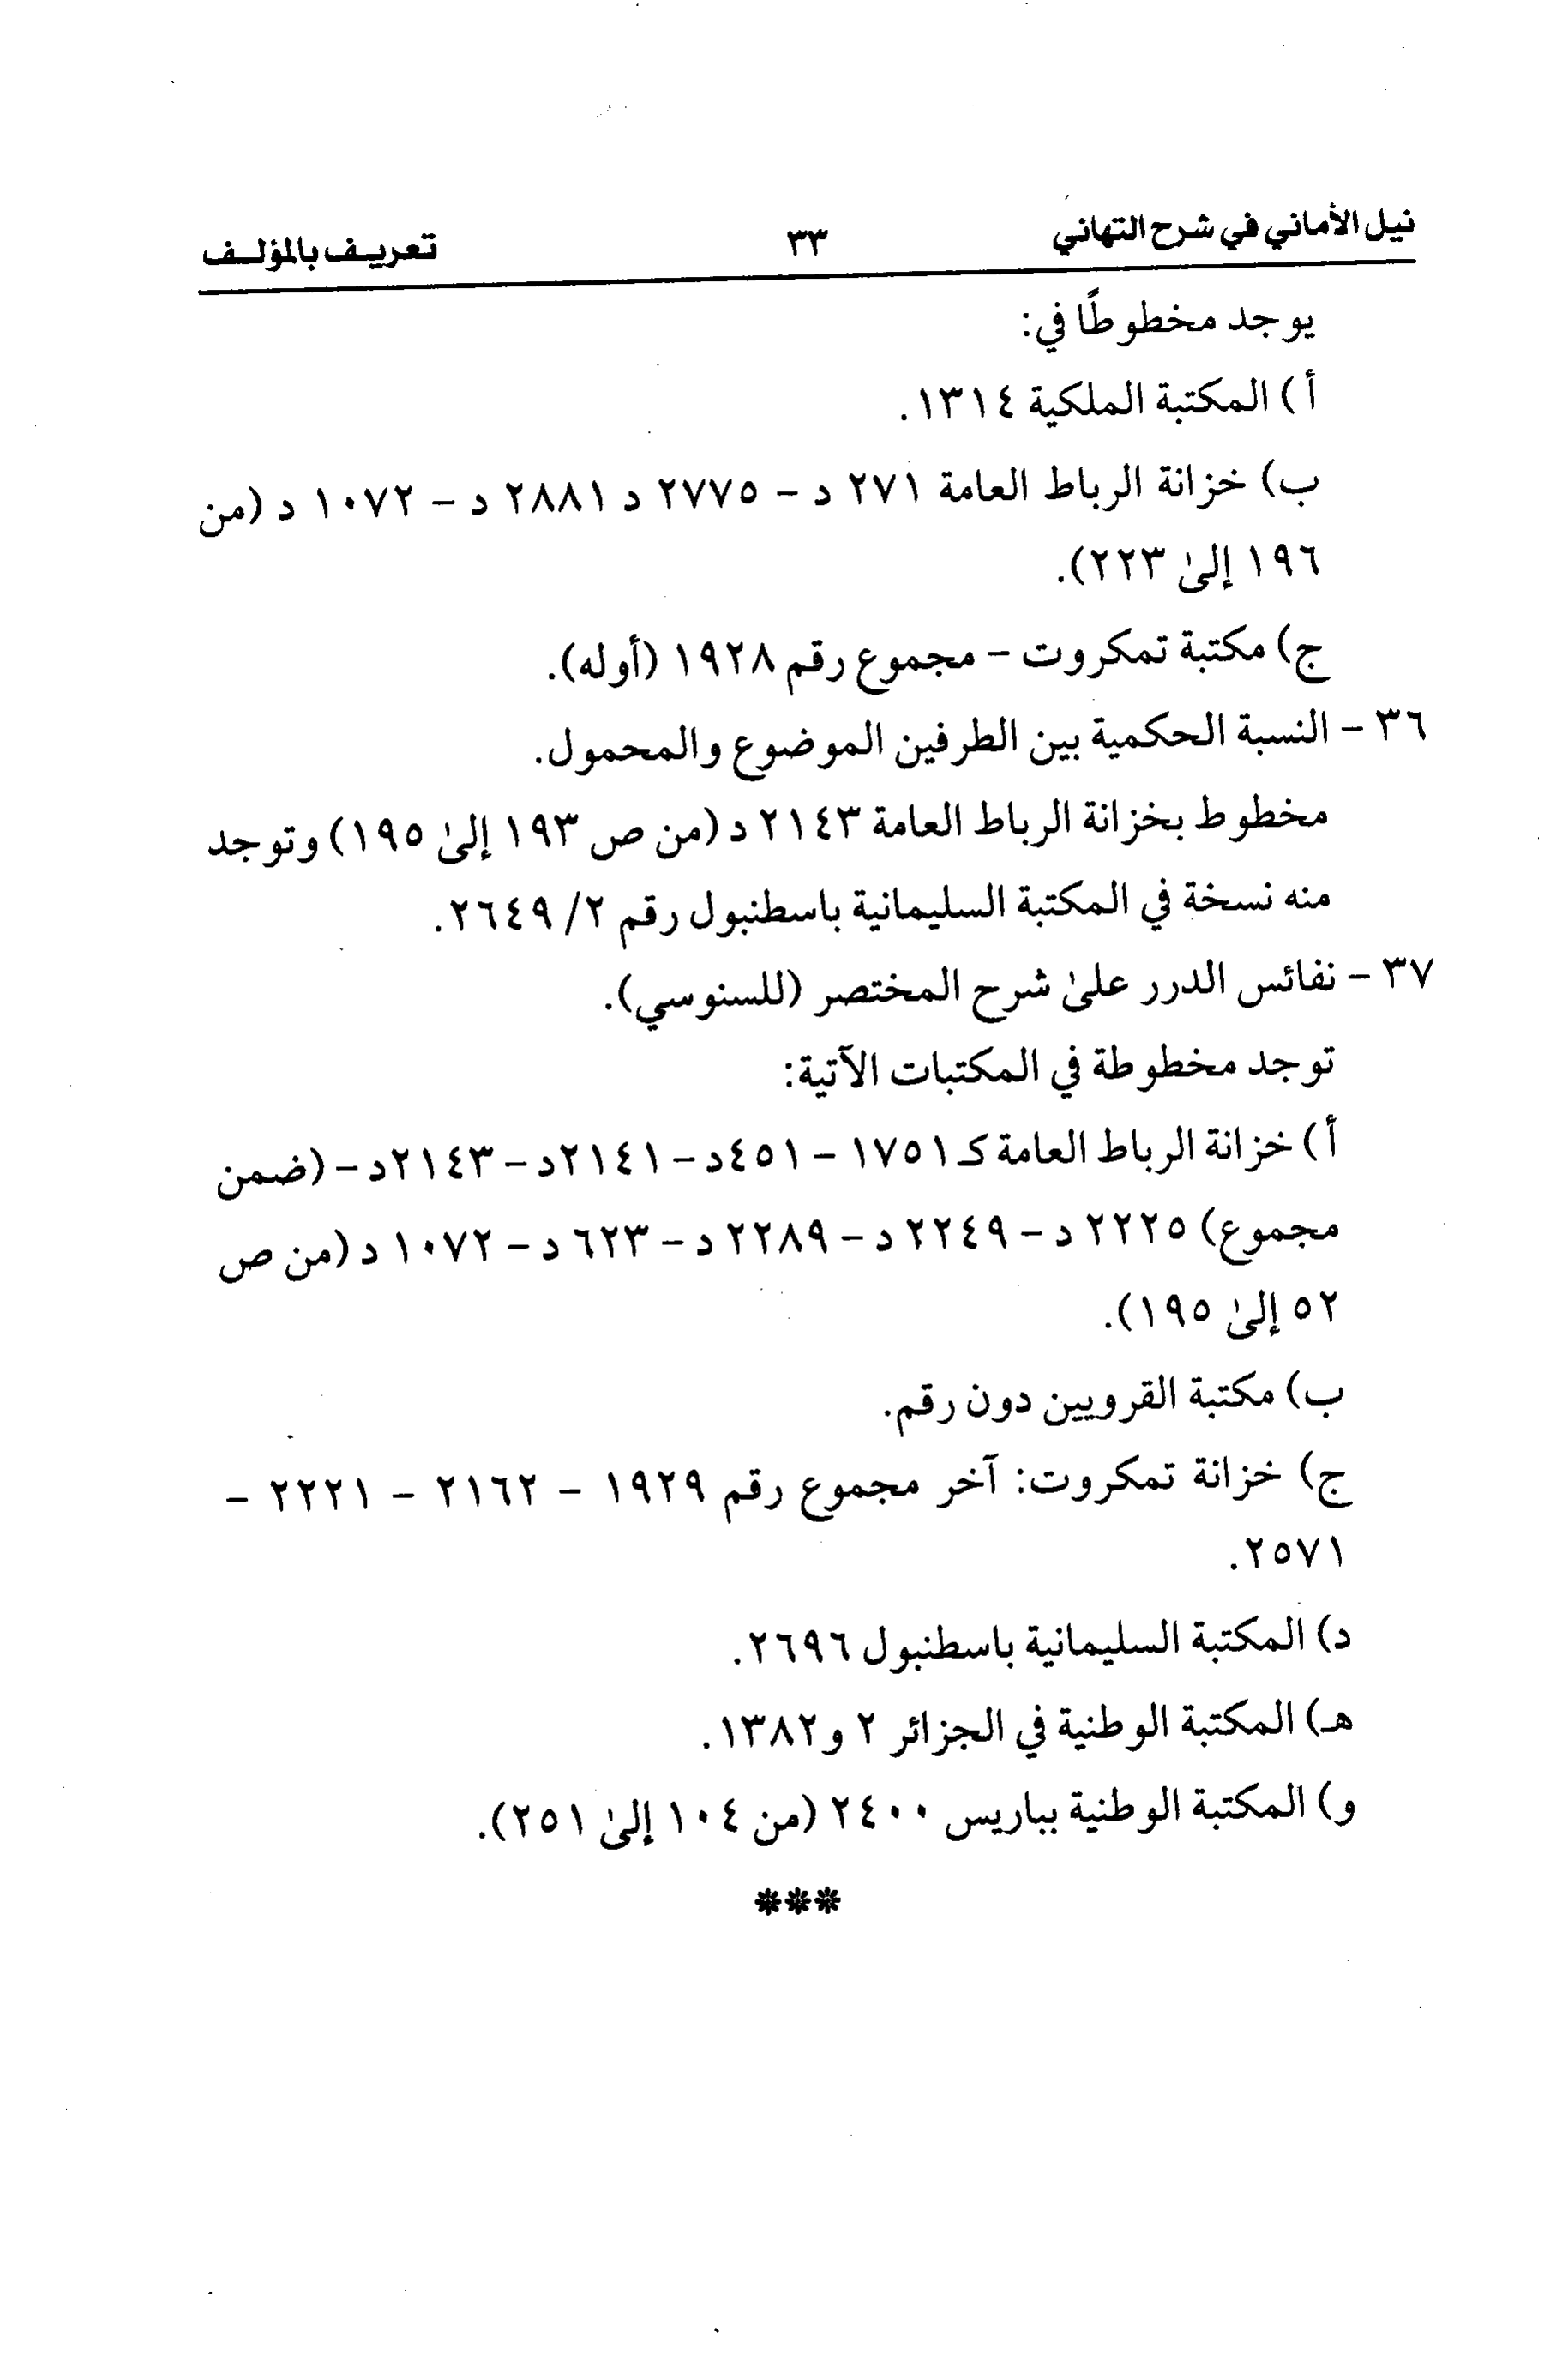 نيل الأماني في شرح التهاني ٣٣ تعريـف بالمؤلـف
يوجد مخطوطًا في:
أ) المكتبة الملكية ١٣١٤.
ب) خزانة الرباط العامة ٢٧١ د - ٢٧٧٥ د ٢٨٨١ د - ١٠٧٢ د (من
١٩٦ إلىٰ ٢٢٣).
ج) مكتبة تمكروت - مجموع رقم ١٩٢٨ (أوله).
٣٦ - النسبة الحكمية بين الطرفين الموضوع والمحمول.
مخطوط بخزانة الرباط العامة ٢١٤٣ د (من ص ١٩٣ إلىٰ ١٩٥) وتوجد
منه نسخة في المكتبة السليمانية باسطنبول رقم ٢/ ٢٦٤٩.
٣٧ - نفائس الدرر علىٰ شرح المختصر (للسنوسي).
توجد مخطوطة في المكتبات الآتية:
أ) خزانة الرباط العامة كـ ١٧٥١ - ٤٥١د - ٢١٤١د - ٢١٤٣د - (ضمن
مجموع) ٢٢٢٥ د - ٢٢٤٩ د - ٢٢٨٩ د - ٦٢٣ د - ١٠٧٢ د (من ص
٥٢ إلىٰ ١٩٥).
ب) مكتبة القرويين دون رقم.
ج) خزانة تمكروت: آخر مجموع رقم ١٩٢٩ - ٢١٦٢ - ٢٢٢١ -
٢٥٧١.
د) المكتبة السليمانية باسطنبول ٢٦٩٦.
هـ) المكتبة الوطنية في الجزائر ٢ و١٣٨٢.
و) المكتبة الوطنية بباريس ٢٤٠٠ (من ١٠٤ إلىٰ ٢٥١).
***